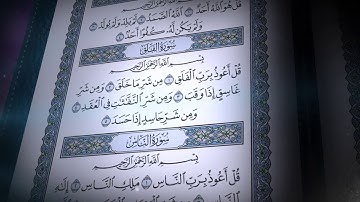 قُلْ هُوَ اللَّهُ أَحَدٌ ۝ اللَّهُ الصَّمَدُ ۝ لَمْ يَلِدْ وَلَمْ يُولَدْ ۝
وَلَمْ يَكُن لَّهُ كُفُوًا أَحَدٌ ۝
سُورَةُ الْفَلَقِ
بِسْمِ اللَّهِ الرَّحْمَٰنِ الرَّحِيمِ
قُلْ أَعُوذُ بِرَبِّ الْفَلَقِ ۝ مِن شَرِّ مَا خَلَقَ ۝ وَمِن شَرِّ
غَاسِقٍ إِذَا وَقَبَ ۝ وَمِن شَرِّ النَّفَّاثَاتِ فِي الْعُقَدِ ۝
وَمِن شَرِّ حَاسِدٍ إِذَا حَسَدَ ۝
سُورَةُ النَّاسِ
بِسْمِ اللَّهِ الرَّحْمَٰنِ الرَّحِيمِ
قُلْ أَعُوذُ بِرَبِّ النَّاسِ ۝ مَلِكِ النَّاسِ ۝ إِلَٰهِ
النَّاسِ ۝ مِن شَرِّ